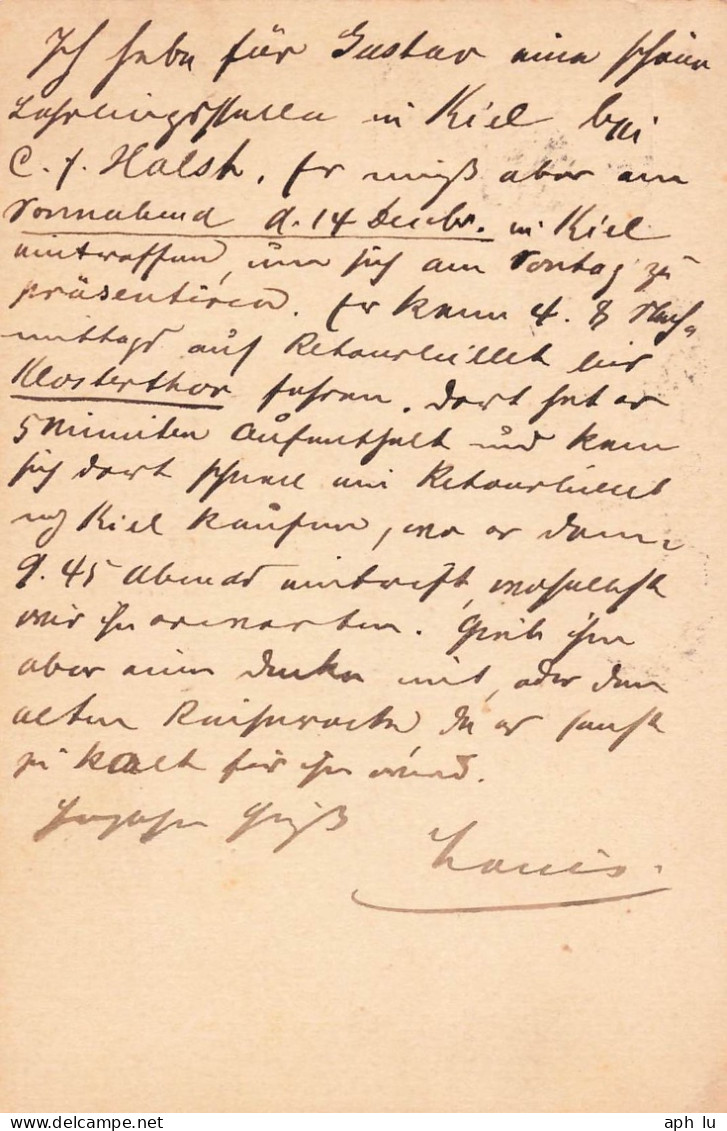 Ich habe für Gustav eine schöne
Lehrlingsstelle in Kiel bei
C. J. Holst. Er muß aber am
Sonnabend d. 14 Decbr. in Kiel
eintreffen, um sich am Sontag zu
präsentiren. Er kann 4. 8 Nach=
mittags auf Retourbillet bis
Klosterthor fahren. Dort hat er
5 Minuten Aufenthalt und kann
sich dort schnell ein Retourbillet
n/ Kiel kaufen, wo er dann
9.45 Abends eintrift, woselbst
wir ihn erwarten. Gieb ihm
aber eine Decke mit, oder den
alten Reiserock da es sonst
zu kalt für ihn wird.
Gruß
Louis.
aph_lu